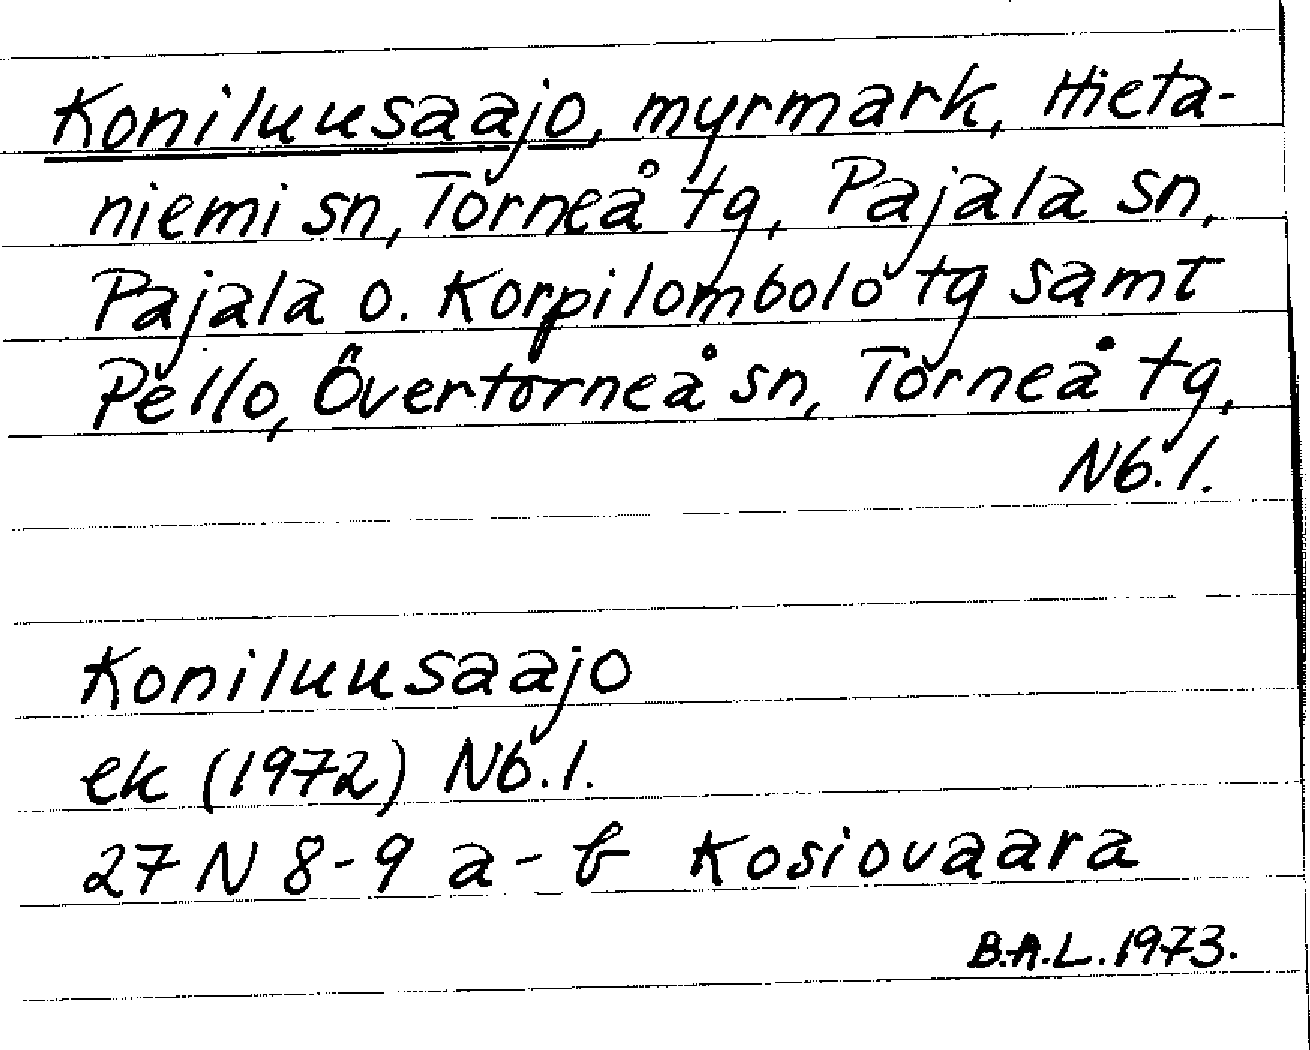 Koniluusaajo, myrmark, Hieta-
niemi sn, Torneå tg, Pajala sn,
Pajala o. Korpilombolo tg samt
Pello, Övertorneå sn, Torneå tg,
Nb. l.
Koniluusaajo
ek (1972) Nb. l.
27 N 8-9 a-b Kosiovaara
B.A.L. 1973.